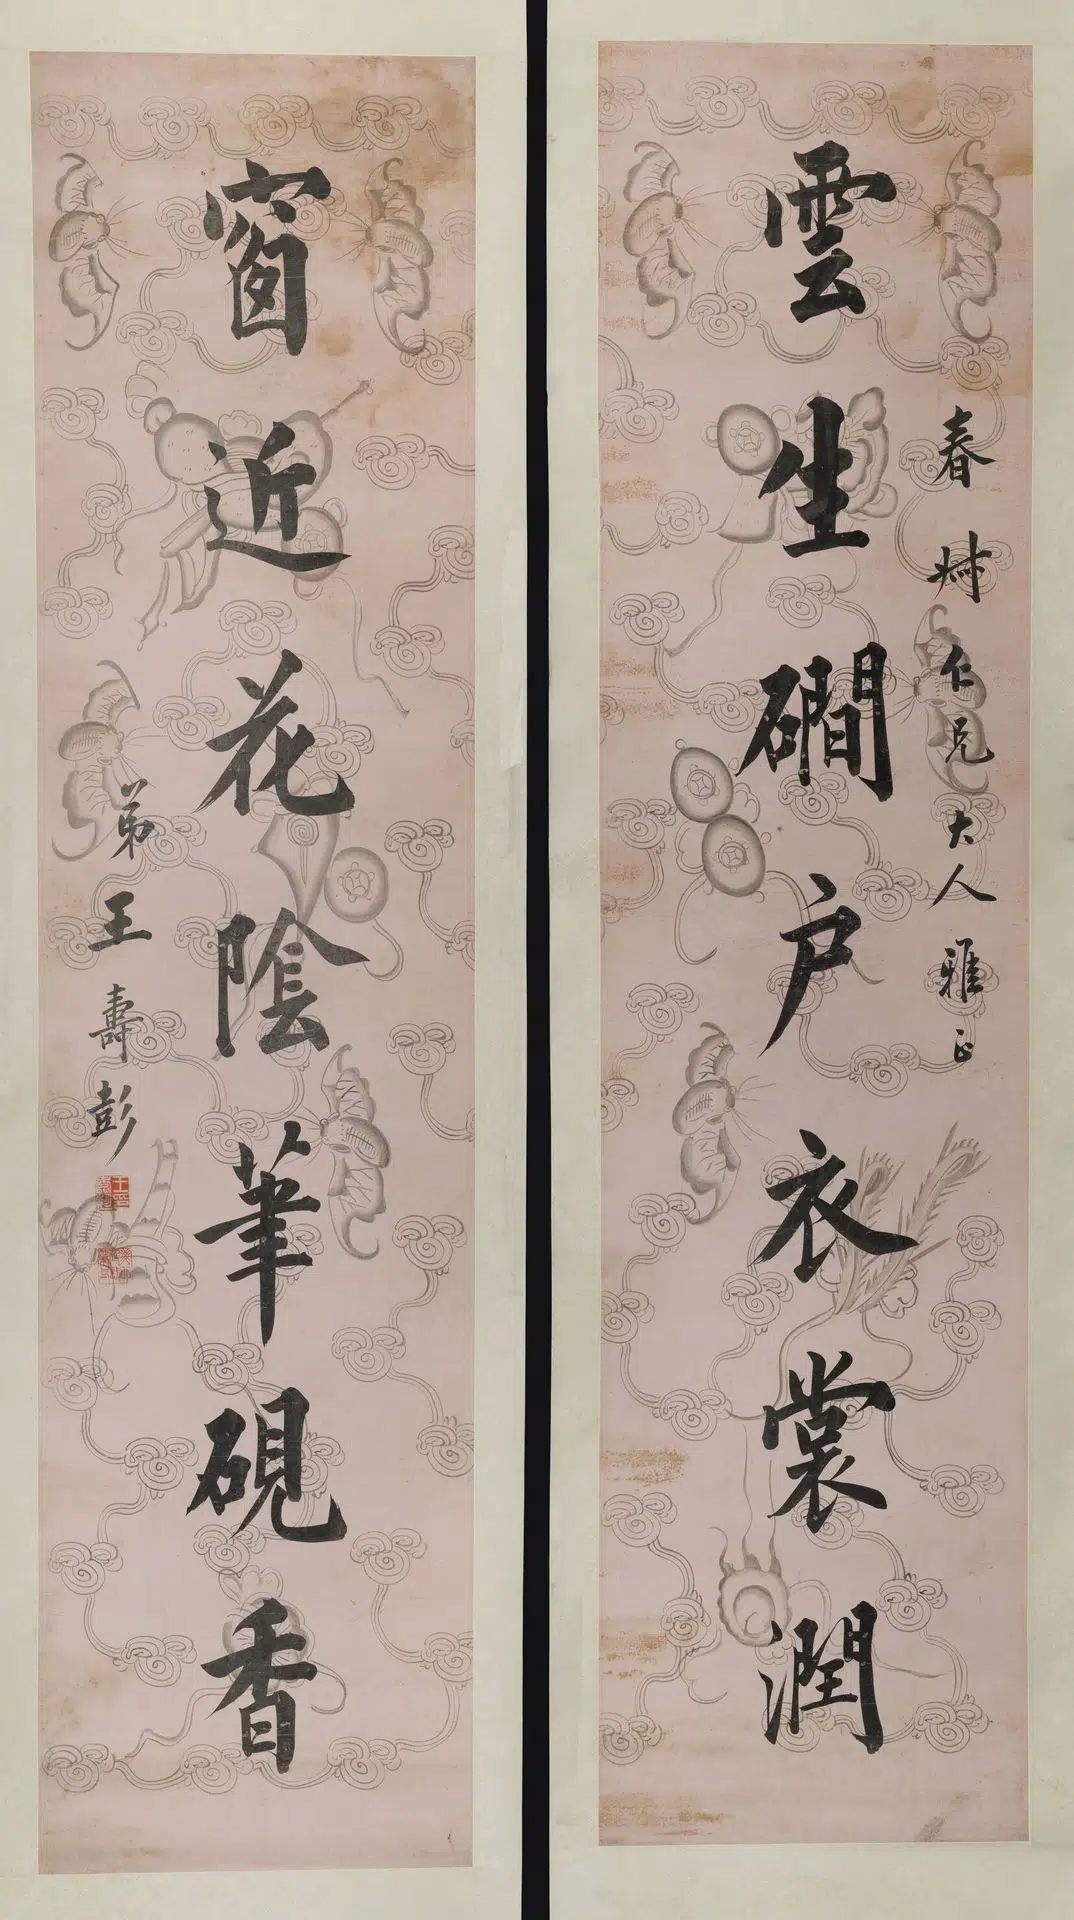 春 仁兄大人雅正
雲生磵户衣裳潤
窗近花陰筆硯香
弟王壽彭